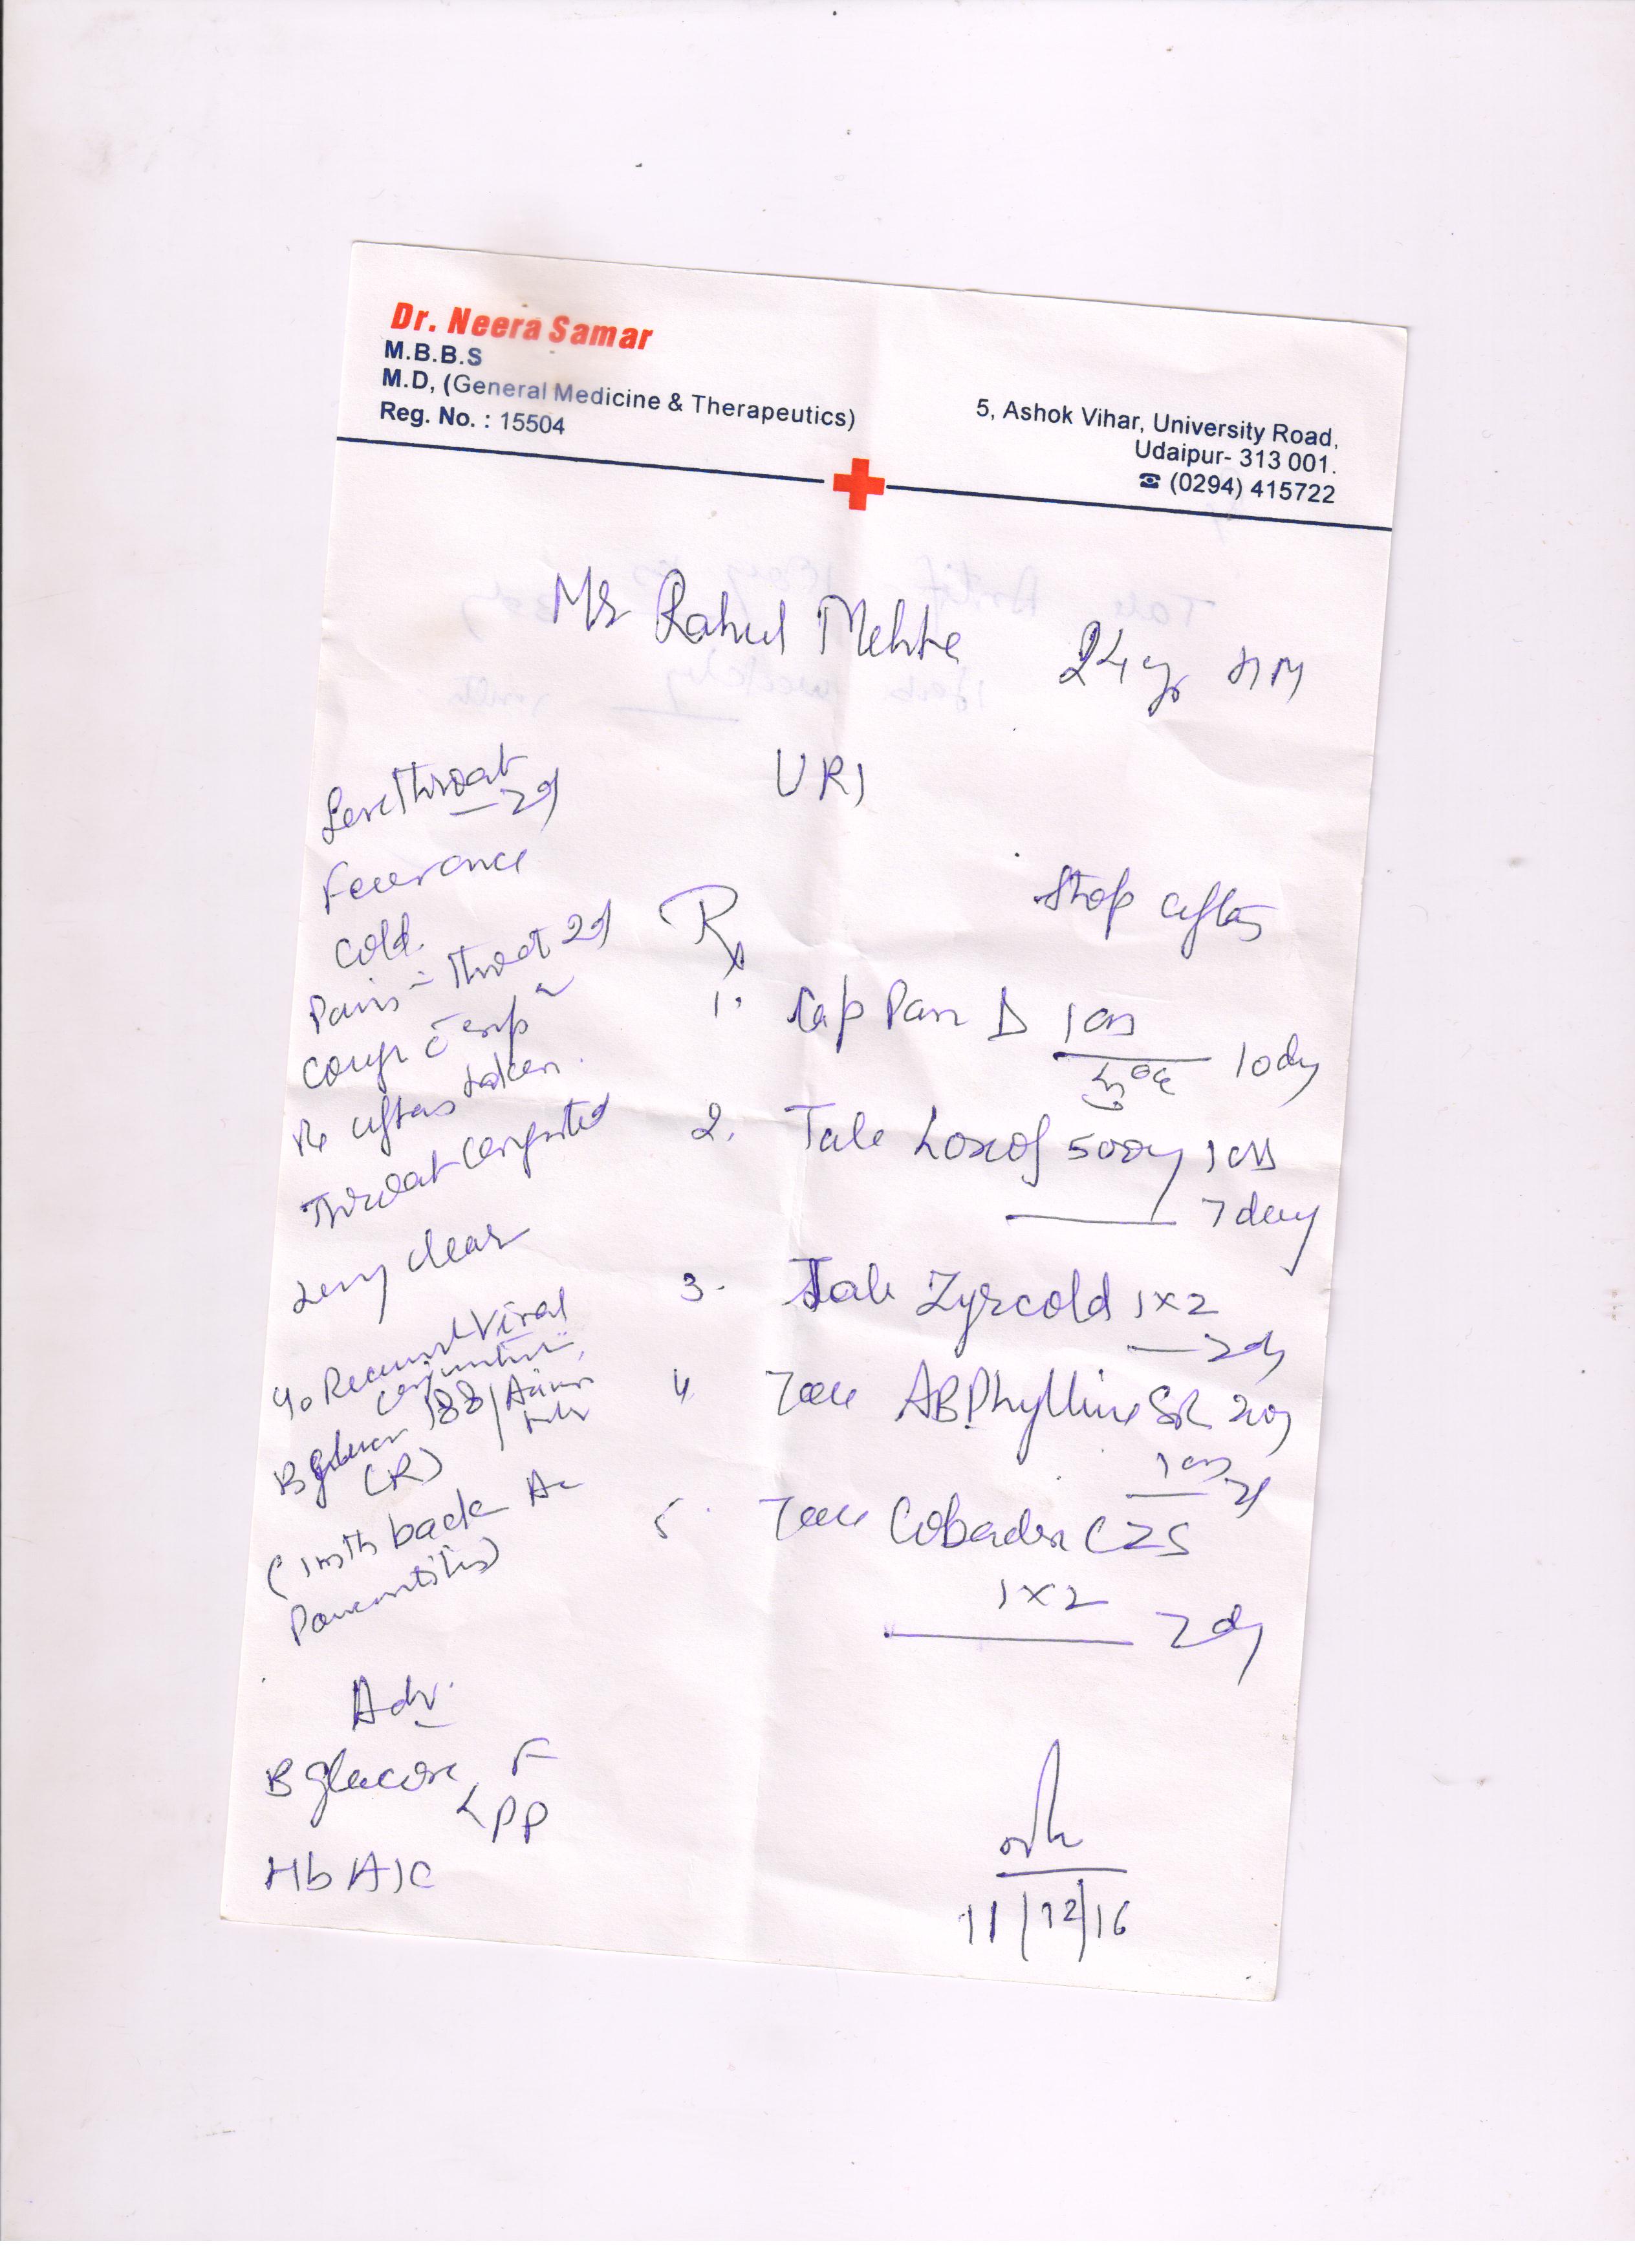 Dr. Neera Samar
M.B.B.S
M.D, (General Medicine & Therapeutics)
Reg. No. : 15504
5, Ashok Vihar, University Road,
Udaipur- 313 001.
☎ (0294) 415722
Mr Rahul Mehta 24 yr
URI
Sore Throat
Fever once
cold.
Pain - Throat 2d
cough c exp
after taken.
Throat congested
Lung clear
Recurrent Viral
B glucose 188
(R)
(1 mth back Ac
Pancreatitis)
Adv.
B glucose F
PP
HbA1C
Rx
Stop after
1. Cap Pan D 1 OD
10 dy
2. Tab Loxof 500mg 1 OD
7 day
3. Tab Zyrcold 1x2
4 Tab ABPhylline SR 200
1 OD
5. Tab Cobadex CZS
1x2
11/12/16